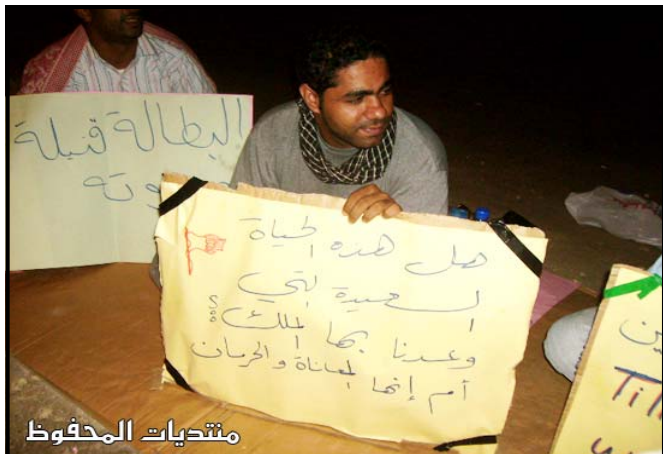 البطالة قنبلة
هل هذه الحياة
السعيدة التي
وعدنا بها الملك ؟؟
أم إنها المعاناة والحرمان
ين
Til
منتديات المحفوظ